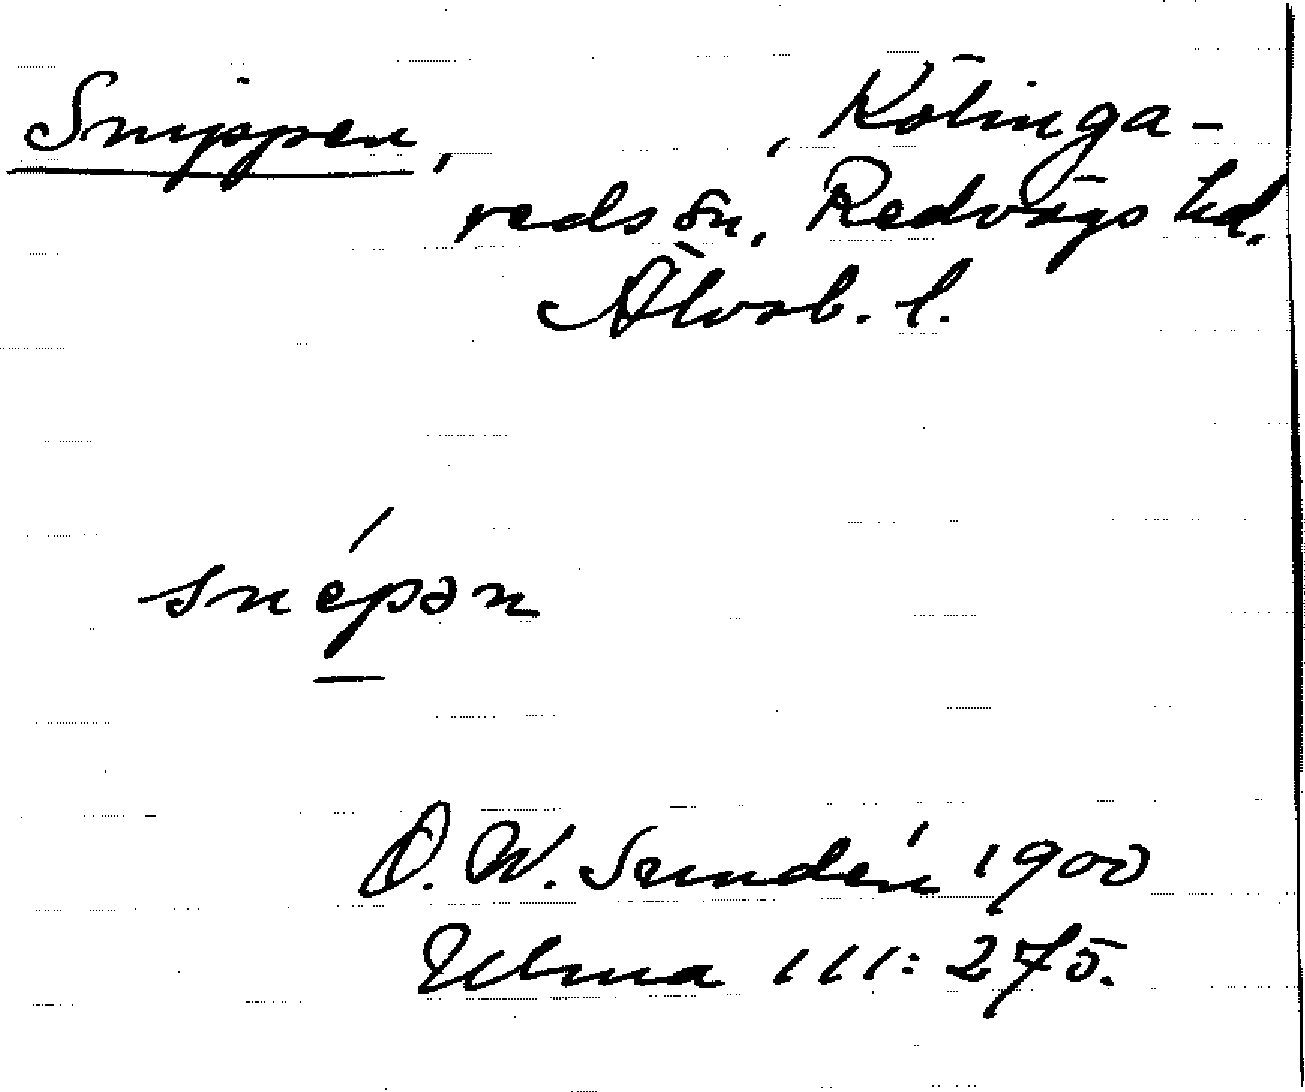 Snippen, , Kölinga-
reds sn, Redvägs hd.
Älvsb. l.
snépən
D. W. Sundén 1900
Ulma 111:275.